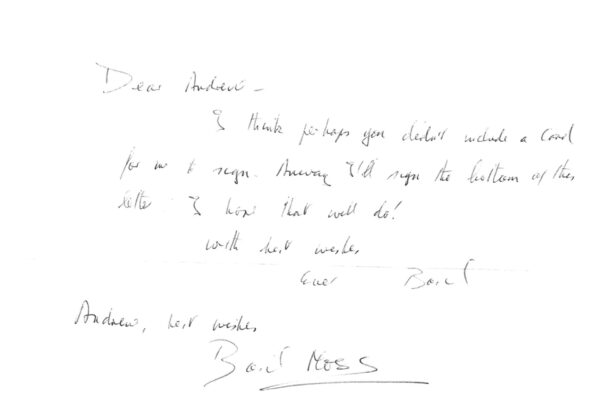 Dear Andrew -
I think perhaps you didn't include a card
for me to sign. Anyway I'll sign the bottom of this
letter. I hope that will do!
with best wishes
ever Basil
Andrew, best wishes
Basil Moss